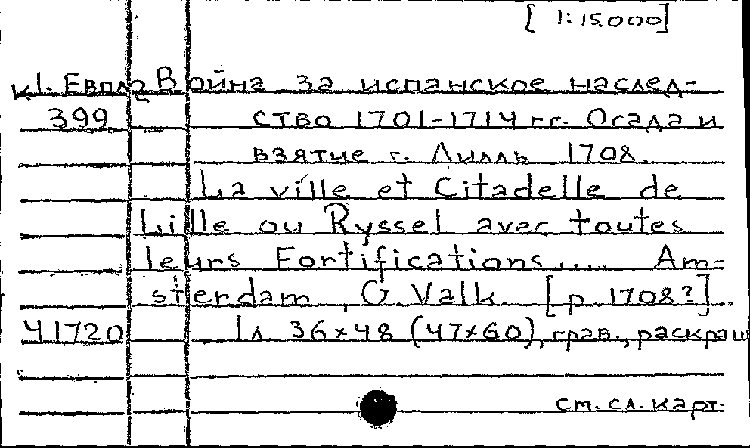 [1:15.000]
к1. Европа Война за испанское наслед-
399 ство 1701-1714 гг. Осада и
взятие г. Лилль 1708.
La ville et Citadelle de
Lille ou Ryssel avec toutes
leurs Fortifications..... Am-
sterdam, G. Valk [p. 1708?]
41720 1л 36×48 (47×60), грав., раскраш
см. сл. карт.